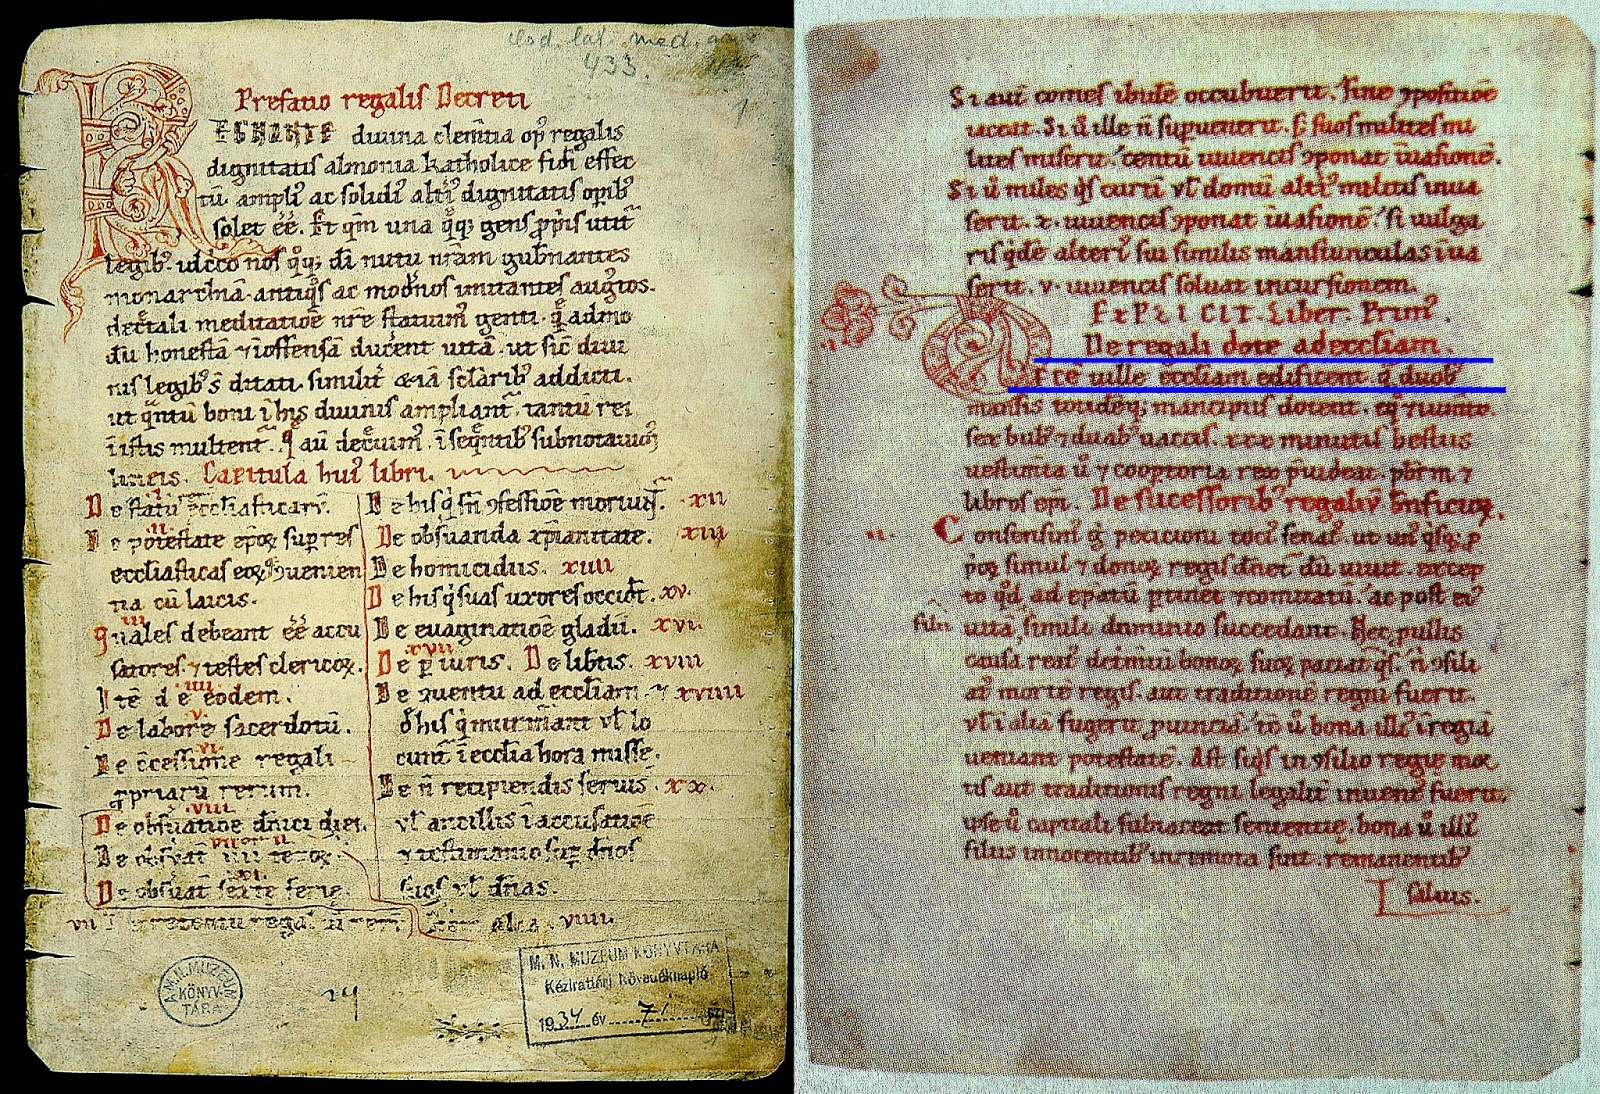 Cod. lat. med. aevi
433.
1
Prefatio regalis Decreti
REGNANTE divina clem̄tia op̄ regalis
dignitatis almonia katholice fidi effec
tū ampli' ac solidi' alti' dignitatis opib'
solet ēē. Et qm̄ una q̄q; gens p̄pis utit'
legib'. idcco nos q̊q; di nutu nr̄am gub̄nantes
monarchiā antiq̊s ac mod̄nos imitantes aug'tos.
dec̄tali meditatiōe nr̄e statuim' genti. q̄ admo
dū honestā ⁊ inoffensā duc̄ent vitā. ut sic divi
nis legib' s̄ ditati. similit' &iā sclārib' addicti.
ut q̄ntū boni i his divinis ampliant'. tantū rei
i istis multent'. q̄ aū dec̄vim'. i seq̄ntib' subnotavim'
lineis. Capitula hui' libri.
De statu eccl̄iasticarū.
II
De potestate ep̄oꝝ super res
eccl̄iasticas eoꝝ q; ꝯvenien
tia cū laicis.
III
Quales debeant ēē accu
satores ⁊ testes clericoꝝ.
IIII
Itē de eodem.
V
De labore sacerdotū.
VI
De c̄cessione regali
p̄priarū rerum.
VIII
De obs̄vatiōe dn̄ici diei.
De obs̄vat' iiii teroꝝ.
XI
De obs̄vat' sexte ferie.
VII
De his q̄ sn̄ ꝯfessiōe moriunt'. XII
De obs̄vanda xp̄ianitate. XIII
De homicidiis. XIIII
De his q̄ suas uxores occid̄t. XV.
De evaginatiōe gladii. XVI
XVII
De piuris. De libtis. XVIII
De ꝯventu ad eccl̄iam ⁊ XVIIII
d' his q̄ murm̄ant vl̄ lo
cunt' i eccl̄ia hora misse.
De n̄ recipiendis servis XX.
vl̄ ancillis i accusatiōe
⁊ testimonio sup dn̄os
suos vl̄ dn̄as.
VIIII
M. N. MUZEUM KÖNYVTÁRA
Kézirattári Növedéknapló
1934 év 71
M. N. MUZEUM KÖNYV-TÁRA
Si aut' comes ibidē occubuerit. sine ꝯpositiōe
iaceat. Si q̄ ille n̄ supvenerit. s̄ suos milites mi
lites miserit. centū iuvencis ꝯponat īvasionē.
Si v̄ miles q̊s curtī vl̄ domū alti' militis inva
serit. x. iuvencis ꝯponat īvasionē. si vulga
ris q̊dē alteri' sui similis mansiunculas īva
serit. v. iuvencis solvat incursionem.
EXPLICIT. Liber. Prim'.
De regali dote ad eccl̄iam.
Decē ville eccl̄iam edificent. q̄ duob'
mansis totidēq; mancipiis dotent. eq̊ ⁊ iumto.
sex bub' ⁊ duab' vaccis. xxx minutis bestiis
vestimta v̄ ⁊ cooptoria rex p̄videat. pb̄rm ⁊
libros ep̄i. De sucessorib' regaliū b̄nficioꝝ.
II.
Consensim' g̊ peticioni toci' senat'. ut un' q̊sq; p
p̄oꝝ simul ⁊ donoꝝ regis dn̄et' dū vivit. excep
to q̊d ad ep̄atū ptinet ⁊ comitatū. ac post ei'
vitā filii simili dominio succedant. Nec p ullis
causa reat' detim̄tū bonoꝝ suoꝝ paciat' q̊s. n̄ ꝯsili
at' mortē regis. aut traditionē regni fuerit.
vl̄ i aliā fugerit p̄vinciā. tē v̄ bona illi' i regiā
veniant potestatē. Ast siq̊s in ꝯsilio regie mor
tis aut traditionis regni legalit' invent' fuerit.
ipse v̄ capitali subiaceat sententie. bona v̄ illi'
filiis innocentib' inremota sint. remanentib'
salvis.